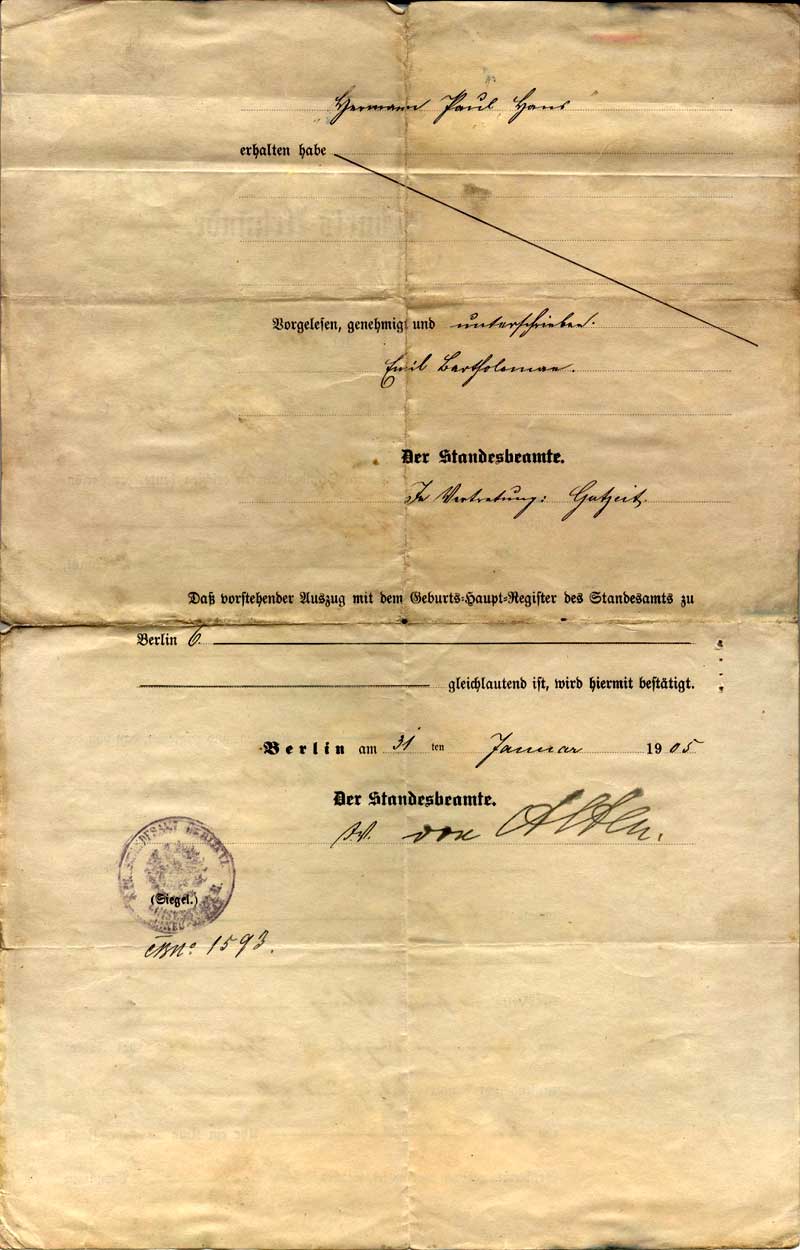 Hermann Paul Hans
erhalten habe
Vorgelesen, genehmigt und unterschrieben.
Emil
Der Standesbeamte.
In Vertretung: Gutzeit.
Daß vorstehender Auszug mit dem Geburts-Haupt-Register des Standesamts zu
Berlin 6.
gleichlautend ist, wird hiermit bestätigt.
Berlin am 31 ten Januar 1905
Der Standesbeamte.
von
(Siegel.)
1593.